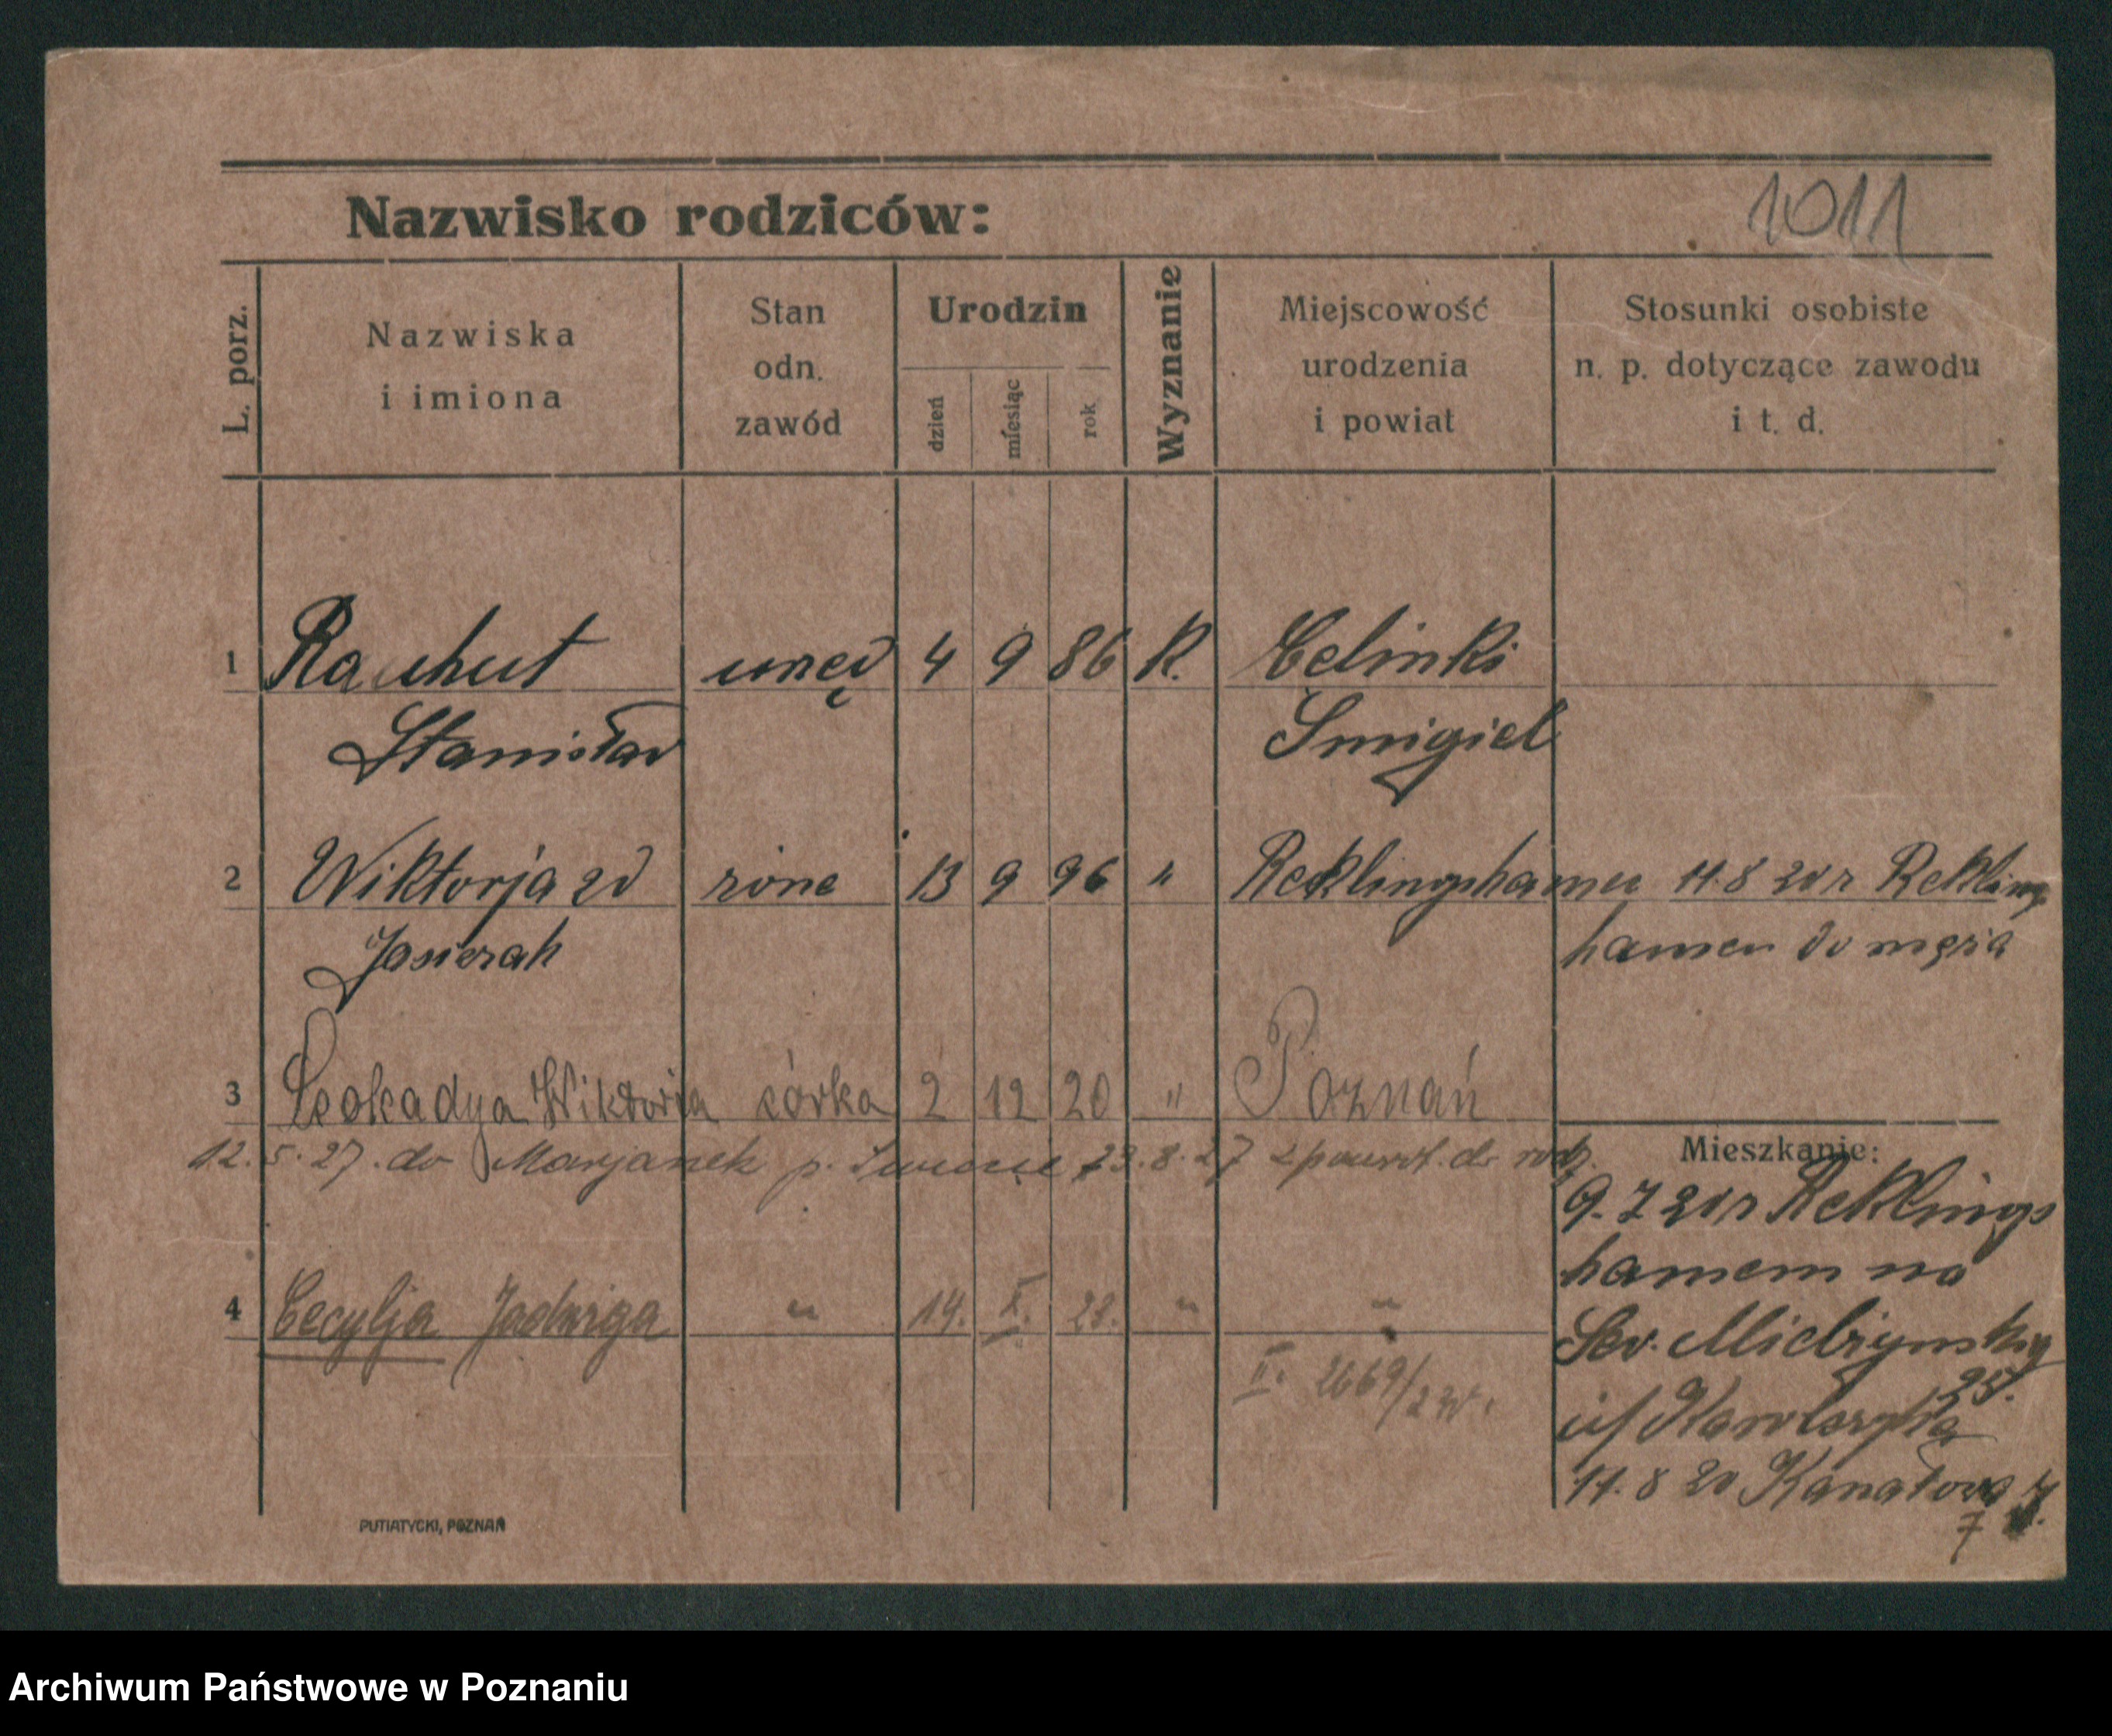 1011
Nazwisko rodziców:
L. porz.
Nazwiska
i imiona
Stan
odn.
zawód
Urodzin
dzień
miesiąc
rok
Wyznanie
Miejscowość
urodzenia
i powiat
Stosunki osobiste
n. p. dotyczące zawodu
i t. d.
1 Rauhut 4 9 86 K. Celinki
Stanisław Smigiel
2 Wiktorja zd żona 13 9 96 " 11.8 20 r Rekling
Jasierak hamen do męża
3 Leokadya Wiktoria córka 2 12 20 " Poznań
12.5.27. do Marjanek p. 23.8.27 z powrot. do rodz.
Mieszkanie:
9.7 20 r Reklings
hamem na
Sew. Mielżynskiego
25.
u/
4 Cecylja Jadwiga " 14. X. 28. " "
II. 2669/
11.8 20 Kanałowa
7
PUTIATYCKI, POZNAŃ
Archiwum Państwowe w Poznaniu